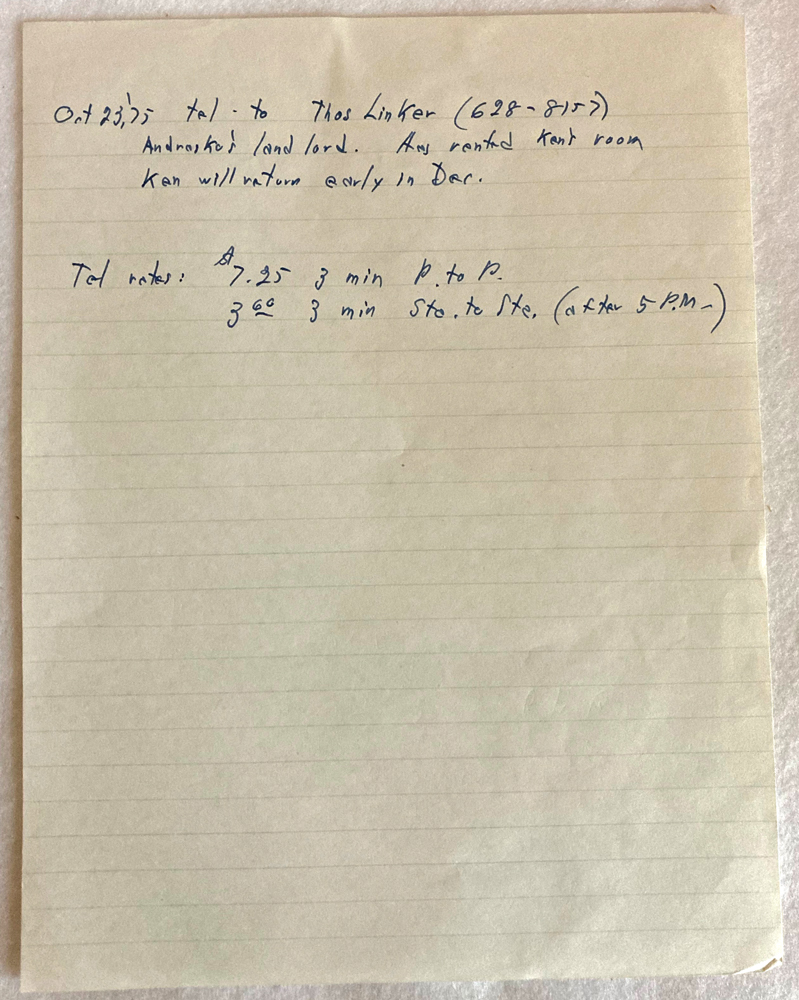 Oct 23,'75 tel. to Thos Linker (628-8157)
Andrasko's landlord. Has rented Ken's room
Ken will return early in Dec.
Tel rates: $7.25 3 min P. to P.
3 00 3 min Sta. to Sta. (after 5 P.M.)